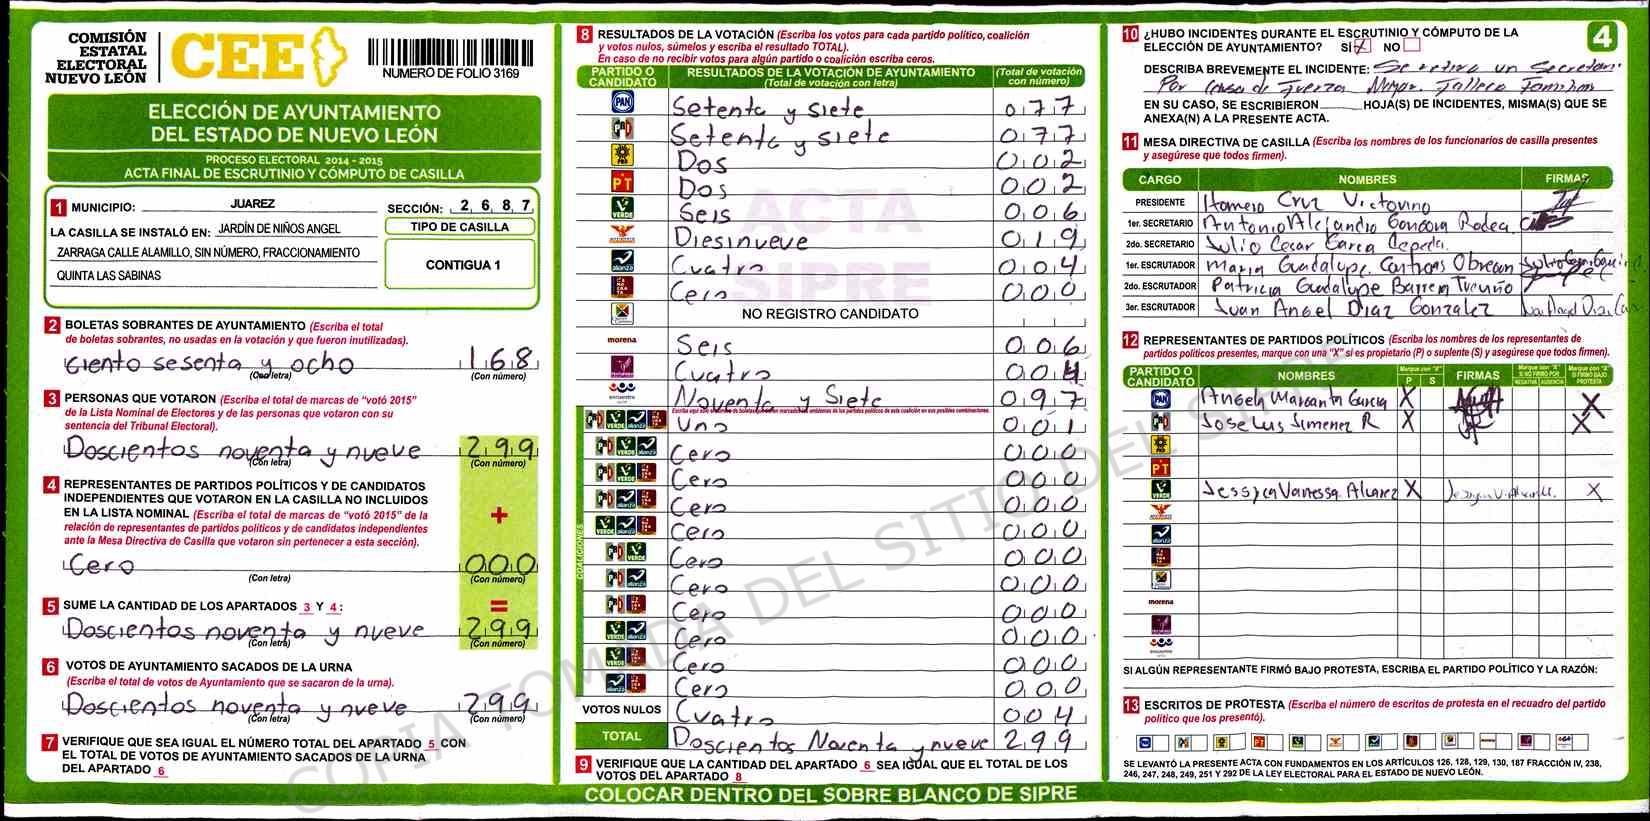 COMISIÓN
ESTATAL
ELECTORAL
NUEVO LEÓN
CEE
NUMERO DE FOLIO 3169
ELECCIÓN DE AYUNTAMIENTO
DEL ESTADO DE NUEVO LEÓN
PROCESO ELECTORAL 2014 - 2015
ACTA FINAL DE ESCRUTINIO Y CÓMPUTO DE CASILLA
1 MUNICIPIO: JUAREZ SECCIÓN: 2,6,8,7
LA CASILLA SE INSTALÓ EN: JARDÍN DE NIÑOS ANGEL
ZARRAGA CALLE ALAMILLO, SIN NÚMERO, FRACCIONAMIENTO
QUINTA LAS SABINAS
TIPO DE CASILLA
CONTIGUA 1
2 BOLETAS SOBRANTES DE AYUNTAMIENTO (Escriba el total
de boletas sobrantes, no usadas en la votación y que fueron inutilizadas).
ciento sesenta y ocho 168
(Con letra) (Con número)
3 PERSONAS QUE VOTARON (Escriba el total de marcas de “votó 2015”
de la Lista Nominal de Electores y de las personas que votaron con su
sentencia del Tribunal Electoral).
Doscientos noventa y nueve 299
(Con letra) (Con número)
4 REPRESENTANTES DE PARTIDOS POLÍTICOS Y DE CANDIDATOS
INDEPENDIENTES QUE VOTARON EN LA CASILLA NO INCLUIDOS
EN LA LISTA NOMINAL (Escriba el total de marcas de “votó 2015” de la
relación de representantes de partidos políticos y de candidatos independientes
ante la Mesa Directiva de Casilla que votaron sin pertenecer a esta sección).
+
Cero 000
(Con letra) (Con número)
5 SUME LA CANTIDAD DE LOS APARTADOS 3 Y 4: =
Doscientos noventa y nueve 299
(Con letra) (Con número)
6 VOTOS DE AYUNTAMIENTO SACADOS DE LA URNA
(Escriba el total de votos de Ayuntamiento que se sacaron de la urna).
Doscientos noventa y nueve 299
(Con letra) (Con número)
7 VERIFIQUE QUE SEA IGUAL EL NÚMERO TOTAL DEL APARTADO 5 CON
EL TOTAL DE VOTOS DE AYUNTAMIENTO SACADOS DE LA URNA
DEL APARTADO 6
8 RESULTADOS DE LA VOTACIÓN (Escriba los votos para cada partido político, coalición
y votos nulos, súmelos y escriba el resultado TOTAL).
En caso de no recibir votos para algún partido o coalición escriba ceros.
PARTIDO O CANDIDATO
RESULTADOS DE LA VOTACIÓN DE AYUNTAMIENTO
(Total de votación con letra)
(Total de votación con número)
PAN Setenta y siete 077
PRD Setenta y siete 077
PRD Dos 002
PT Dos 002
VERDE Seis 006
Diesinueve 019
alianza Cuatro 004
Cero 000
NO REGISTRO CANDIDATO
morena Seis 006
Cuatro 004
encuentro Noventa y Siete 097
COALICIONES
uno 001
Cero 000
Cero 000
Cero 000
Cero 000
Cero 000
Cero 000
Cero 000
Cero 000
Cero 000
Cero 000
VOTOS NULOS Cuatro 004
TOTAL Doscientos Noventa y nueve 299
9 VERIFIQUE QUE LA CANTIDAD DEL APARTADO 6 SEA IGUAL QUE EL TOTAL DE LOS
VOTOS DEL APARTADO 8
COLOCAR DENTRO DEL SOBRE BLANCO DE SIPRE
ACTA
SIPRE
COPIA TOMADA DEL SITIO DEL SIPRE
4
10 ¿HUBO INCIDENTES DURANTE EL ESCRUTINIO Y CÓMPUTO DE LA
ELECCIÓN DE AYUNTAMIENTO? SÍ X NO
DESCRIBA BREVEMENTE EL INCIDENTE: Se retira un Secretari
Por Causa de Fuerza Mayor. Fallecio Familiar
EN SU CASO, SE ESCRIBIERON HOJA(S) DE INCIDENTES, MISMA(S) QUE SE
ANEXA(N) A LA PRESENTE ACTA.
11 MESA DIRECTIVA DE CASILLA (Escriba los nombres de los funcionarios de casilla presentes
y asegúrese que todos firmen).
CARGO NOMBRES FIRMAS
PRESIDENTE Homero Cruz Victorino
1er. SECRETARIO Antonio Alejandro Gongora Rodea
2do. SECRETARIO Julio Cesar Garcia Cepeda
1er. ESCRUTADOR Maria Guadalupe
2do. ESCRUTADOR Patricia Guadalupe Barrera Treviño
3er. ESCRUTADOR Juan Angel Diaz Gonzalez
12 REPRESENTANTES DE PARTIDOS POLÍTICOS (Escriba los nombres de los representantes de
partidos políticos presentes, marque con una “X” si es propietario (P) o suplente (S) y asegúrese que todos firmen).
PARTIDO O CANDIDATO NOMBRES Marque con "X" P S FIRMAS Marque con "X" SI NO FIRMÓ POR NEGATIVA AUSENCIA Marque con "X" SI FIRMÓ BAJO PROTESTA
PAN Angela Margarita Garcia X X
Jose Luis Jimenez R X X
PRD
PT
VERDE Jessyca Vanessa Alvarez X X
alianza
morena
encuentro
SI ALGÚN REPRESENTANTE FIRMÓ BAJO PROTESTA, ESCRIBA EL PARTIDO POLÍTICO Y LA RAZÓN:
13 ESCRITOS DE PROTESTA (Escriba el número de escritos de protesta en el recuadro del partido
político que los presentó).
SE LEVANTÓ LA PRESENTE ACTA CON FUNDAMENTOS EN LOS ARTÍCULOS 126, 128, 129, 130, 187 FRACCIÓN IV, 238,
246, 247, 248, 249, 251 Y 292 DE LA LEY ELECTORAL PARA EL ESTADO DE NUEVO LEÓN.